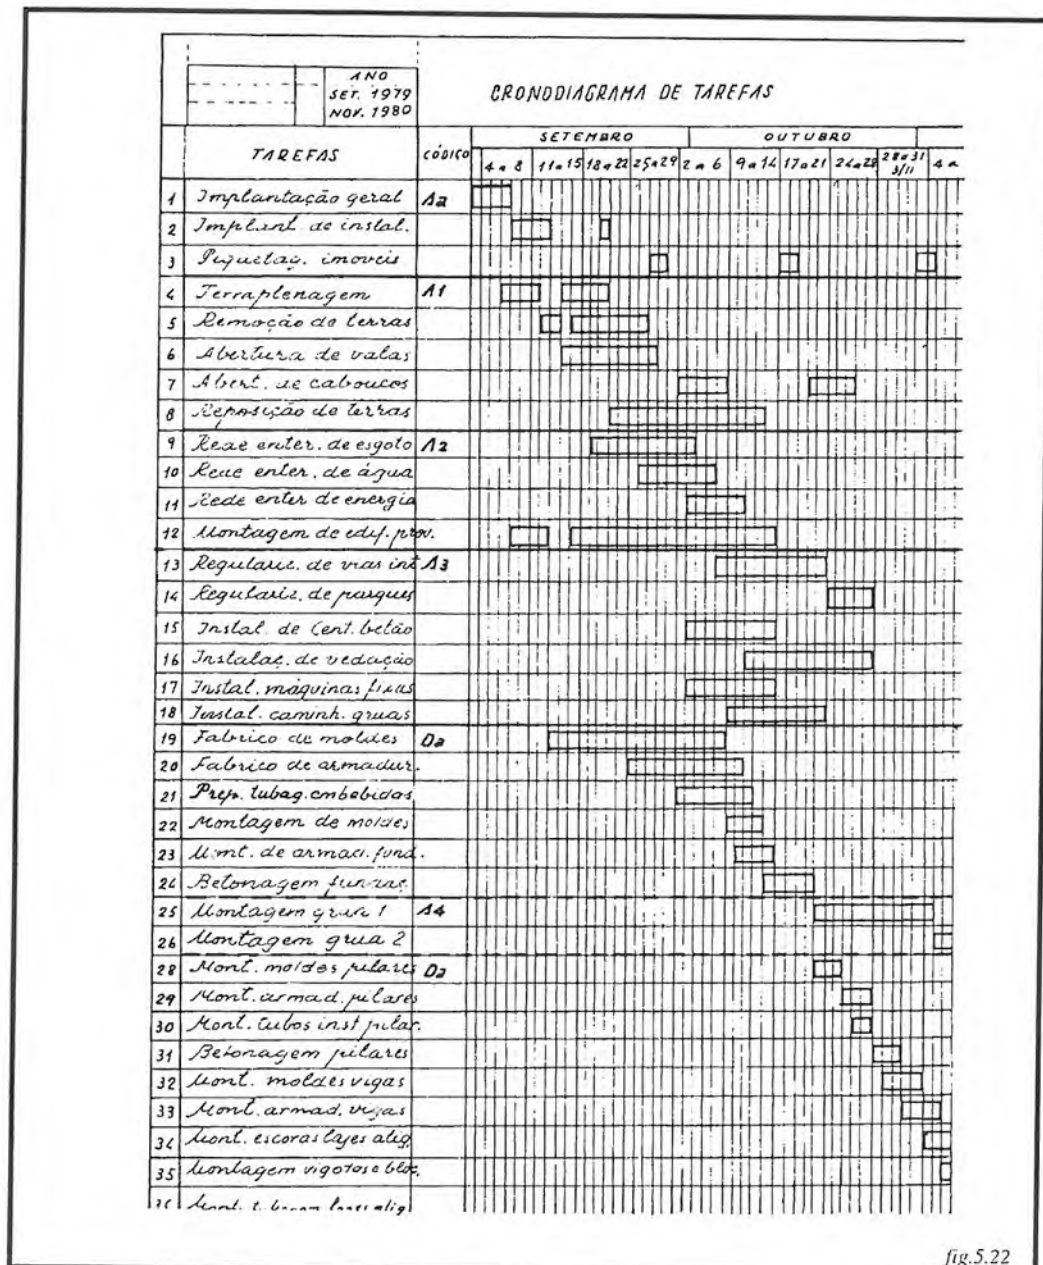 ANO
SET. 1979
NOV. 1980
CRONODIAGRAMA DE TAREFAS
TAREFAS CÓDIGO SETEMBRO OUTUBRO
4 a 8 11 a 15 18 a 22 25 a 29 2 a 6 9 a 14 17 a 21 24 a 28 28 a 31 3/11 4 a
1 Implantação geral Aa
2 Implant. de instal.
3 Piquetag. imoveis
4 Terraplenagem A1
5 Remoção de terras
6 Abertura de valas
7 Abert. de caboucos
8 Reposição de terras
9 Rede enter. de esgoto A2
10 Rede enter. de água
11 Rede enter de energia
12 Montagem de edif. prov.
13 Regulariz. de vias int A3
14 Regulariz. de parques
15 Instal. de Cent. betão
16 Instalaç. de vedação
17 Instal. máquinas fixas
18 Instal. caminh. gruas
19 Fabrico de moldes Da
20 Fabrico de armadur.
21 Prep. tubag. embebidas
22 Montagem de moldes
23 Mont. de armad. fund.
24 Betonagem fundaç.
25 Montagem grua 1 A4
26 Montagem grua 2
28 Mont. moldes pilares Da
29 Mont. armad. pilares
30 Mont. tubos inst pilar.
31 Betonagem pilares
32 Mont. moldes vigas
33 Mont. armad. vigas
34 Mont. escoras lajes alig.
35 Montagem vigotas e bloc.
fig.5.22